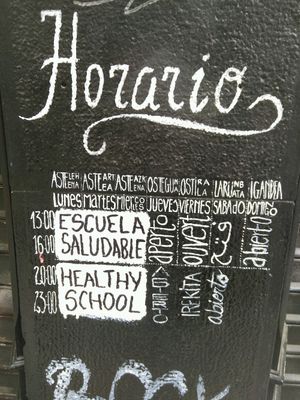 Horario
ASTELEHENA ASTEARTEA ASTEAZKENA OSTEGUNA OSTIRALA LARUNBATA IGANDEA
LUNES MARTES MIERCOLES JUEVES VIERNES SABADO DOMINGO
13:00 ESCUELA
16:00 SALUDABLE
20:00 HEALTHY
23:00 SCHOOL
aperto
ouvert
IREKITA
abierto